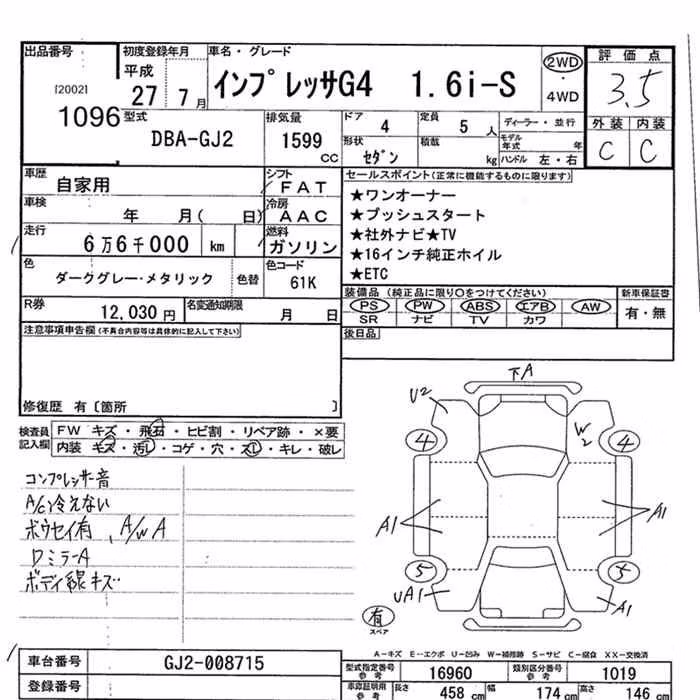 出品番号
[2002]
1096
初度登録年月
平成
27 7 月
車名・グレード
インプレッサG4 1.6i-S
2WD
・
4WD
評価点
3.5
外装 内装
C C
型式
DBA-GJ2
排気量
1599
CC
ドア
4
定員
5 人
ディーラー・並行
形状
セダン
積載
kg
モデル年式 年
ハンドル 左・右
車歴
自家用
シフト
FAT
車検
年 月( 日)
冷房
AAC
走行
6万6千000 km
燃料
ガソリン
色
ダークグレー・メタリック
色替
色コード
61K
R券
12,030 円
名変通知期限
月 日
セールスポイント(正常に機能するものに限ります)
★ワンオーナー
★プッシュスタート
★社外ナビ★TV
★16インチ純正ホイル
★ETC
装備品 (純正品に限り○をつけてください)
PS PW ABS エアB AW
SR ナビ TV カワ
新車保証書
有・無
後日品
注意事項申告欄(不具合内容等は具体的に記入して下さい)
修復歴 有〔箇所 〕
検査員
記入欄
FW キズ・飛石・ヒビ割・リペア跡・×要
内装 キズ・汚レ・コゲ・穴・スレ・キレ・破レ
コンプレッサー音
A/C冷えない
ボウセイ有、A/W A
Dミラー A
ボディ線キズ
下A
U2
W2
4
4
A1
A1
5
5
UA1
A1
有
スペア
A-キズ E-エクボ U-凹み W-補修跡 S-サビ C-腐食 XX-交換済
車台番号
GJ2-008715
登録番号
型式指定番号
参考
16960
類別区分番号
参考
1019
車庫証明用
参考
長さ
458 cm
幅
174 cm
高さ
146 cm